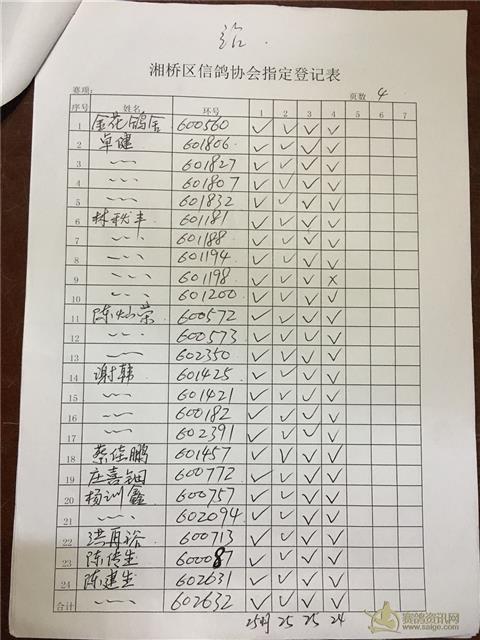 湘桥区信鸽协会指定登记表
赛项: 页数 4
序号 姓名 环号 1 2 3 4 5 6 7
1 金花鸽舍 600560 ✓ ✓ ✓ ✓
2 卓健 601806 ✓ ✓ ✓ ✓
3 〃 601827 ✓ ✓ ✓ ✓
4 〃 601807 ✓ ✓ ✓ ✓
5 〃 601832 ✓ ✓ ✓ ✓
6 林秋丰 601181 ✓ ✓ ✓ ✓
7 〃 601188 ✓ ✓ ✓ ✓
8 〃 601194 ✓ ✓ ✓ ✓
9 〃 601198 ✓ ✓ ✓ ×
10 〃 601200 ✓ ✓ ✓ ✓
11 陈灿荣 600572 ✓ ✓ ✓ ✓
12 〃 600573 ✓ ✓ ✓ ✓
13 〃 602350 ✓ ✓ ✓ ✓
14 谢韩 601425 ✓ ✓ ✓ ✓
15 〃 601421 ✓ ✓ ✓ ✓
16 〃 600182 ✓ ✓ ✓ ✓
17 〃 602391 ✓ ✓ ✓ ✓
18 蔡佳鹏 601457 ✓ ✓ ✓ ✓
19 庄喜钿 600772 ✓ ✓ ✓ ✓
20 杨训鑫 600757 ✓ ✓ ✓ ✓
21 〃 602094 ✓ ✓ ✓ ✓
22 洪再裕 600713 ✓ ✓ ✓ ✓
23 陈传生 600087 ✓ ✓ ✓ ✓
24 陈建生 602631 ✓ ✓ ✓ ✓
合计 〃 602632 ✓ ✓ ✓ ✓
25 25 24
赛鸽资讯网
www.saige.com